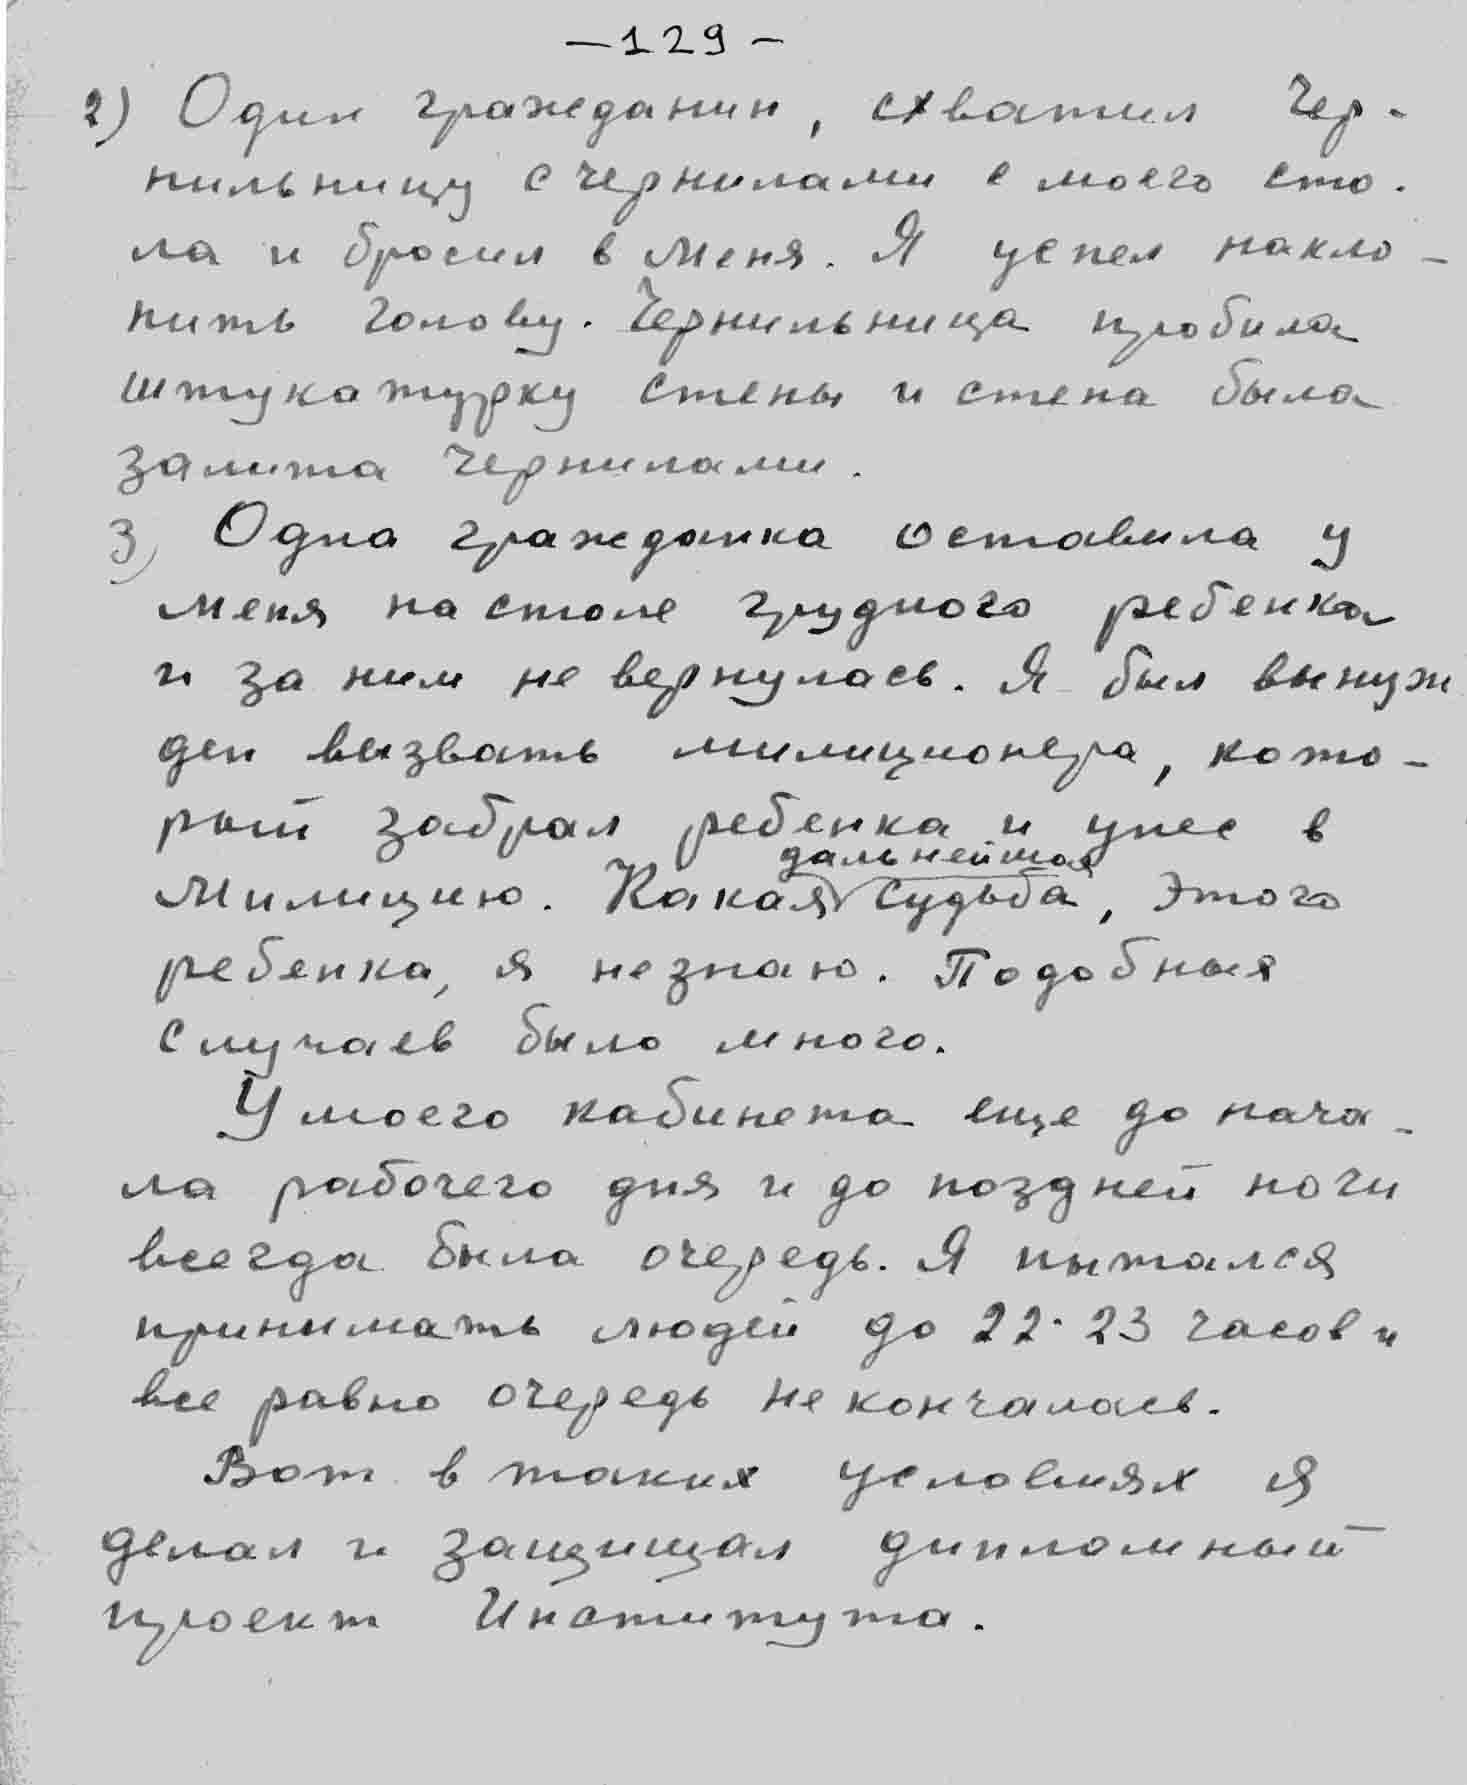 —129—
2) Один гражданин, схватил чер-
нильницу с чернилами с моего сто-
ла и бросил в меня. Я успел накло-
нить голову. Чернильница пробила
штукатурку стены и стена была
залита чернилами.
3) Одна гражданка оставила у
меня на столе грудного ребенка
и за ним не вернулась. Я был вынуж
ден вызвать милиционера, кото-
рый забрал ребенка и унес в
дальнейшая
милицию. Какая судьба, этого
ребенка, я не знаю. Подобных
случаев было много.
У моего кабинета еще до нача-
ла рабочего дня и до поздней ночи
всегда была очередь. Я пытался
принимать людей до 22-23 часов и
все равно очередь не кончалась.
Вот в таких условиях я
делал и защищал дипломный
проект Института.